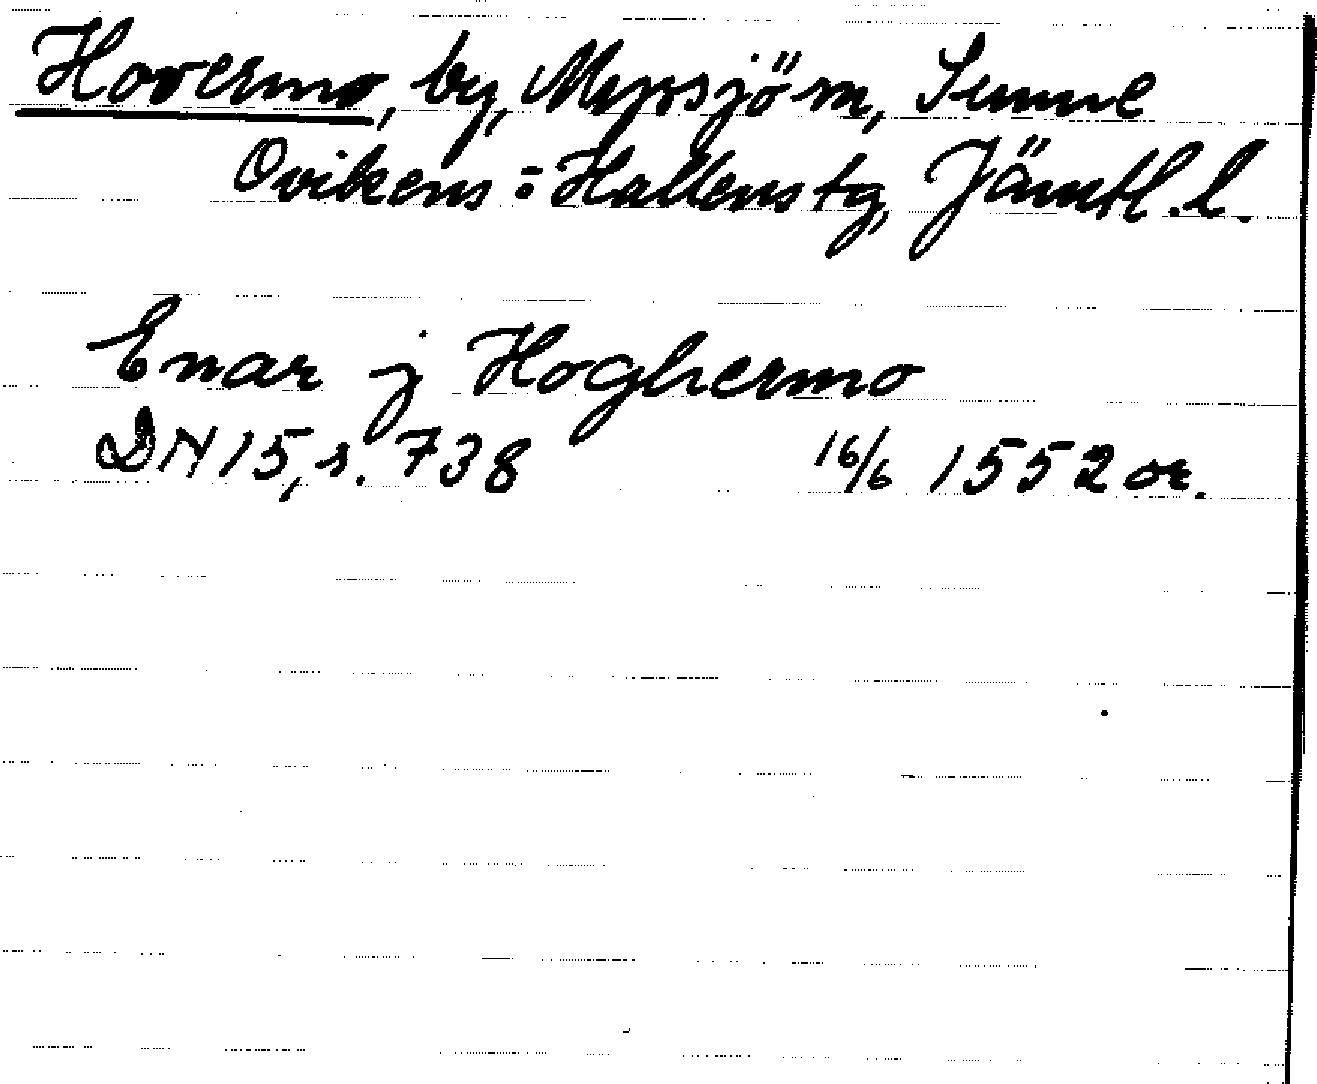 Hovermo, by, Myssjö sn, Sunne
Ovikens o Hallens tg, Jämtl. l.
Enar j Hoghermo
DN 15, s. 738 16/6 1552 or.